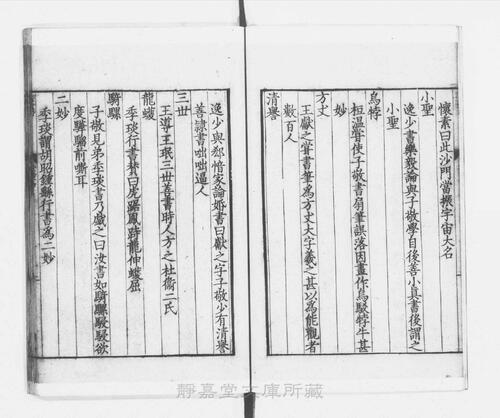 懷素曰此沙門當振宇宙大名
小聖
逸少書樂毅論與子敬學自後善小真書後謂之
小聖
烏牸
桓溫嘗使子敬書扇筆誤落因畫作烏駮牸牛甚
妙
方丈
王獻之嘗書筆為方丈大字羲之甚以為能觀者
數百人
清譽
逸少與郄愔家論婚書曰獻之字子敬少有清譽
善隸書咄咄逼人
三世
王導王珉三世善書時人方之杜衛二氏
龍蠖
季琰行書贊曰虎踞鳳跱龍伸蠖屈
騎騾
子敬見弟季琰書乃戲之曰汝書如騎騾駸駸欲
度驊騮前嘶耳
二妙
季琰謂胡昭鍾繇行書為二妙
靜嘉堂文庫所藏